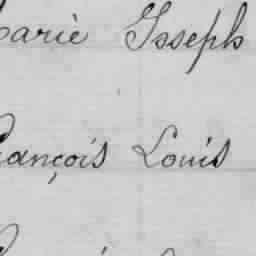 arie Joseph
ançois Louis